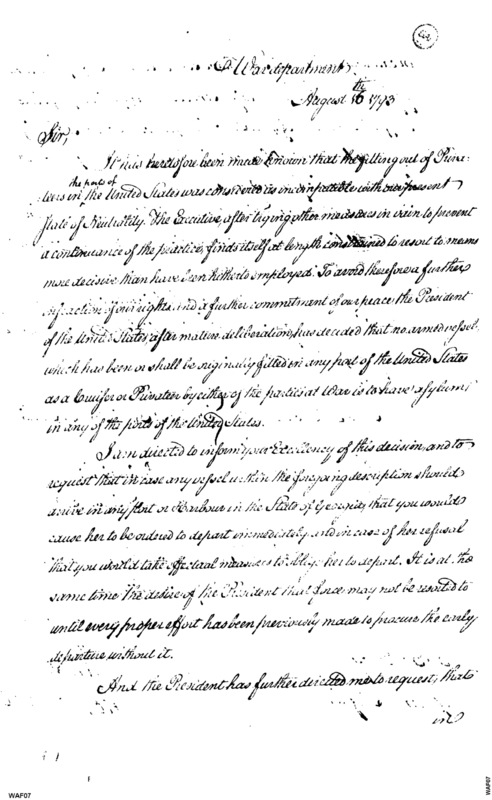 3
War department
August 16th 1793
Sir,
It has heretofore been made known that the fitting out of Priva-
teers in the ports of the United States was considered as incompatible with our present
State of Neutrality. The Executive, after trying other measures in vain to prevent
a continuance of the practice, finds itself at length constrained to resort to means
more decisive than have been hitherto employed. To avoid therefore a further
infraction of our rights and a further commitment of our peace, the President
of the United States, after mature deliberation, has decided that no armed vessel,
which has been or shall be originally fitted in any port of the United States
as a Cruiser or Privateer by either of the parties at War is to have asylum
in any of the ports of the United States.
I am directed to inform your Excellency of this decision, and to
request that in case any vessel within the foregoing description should
arrive in any Port or Harbour in the State of Georgia that you would
cause her to be ordered to depart immediately and in case of her refusal
that you would take effectual measures to oblige her to depart. It is at the
same time the desire of the President that force may not be resorted to
until every proper effort has been previously made to procure the early
departure without it.
And the President has further directed me to request, that
in
WAF07
WAF07